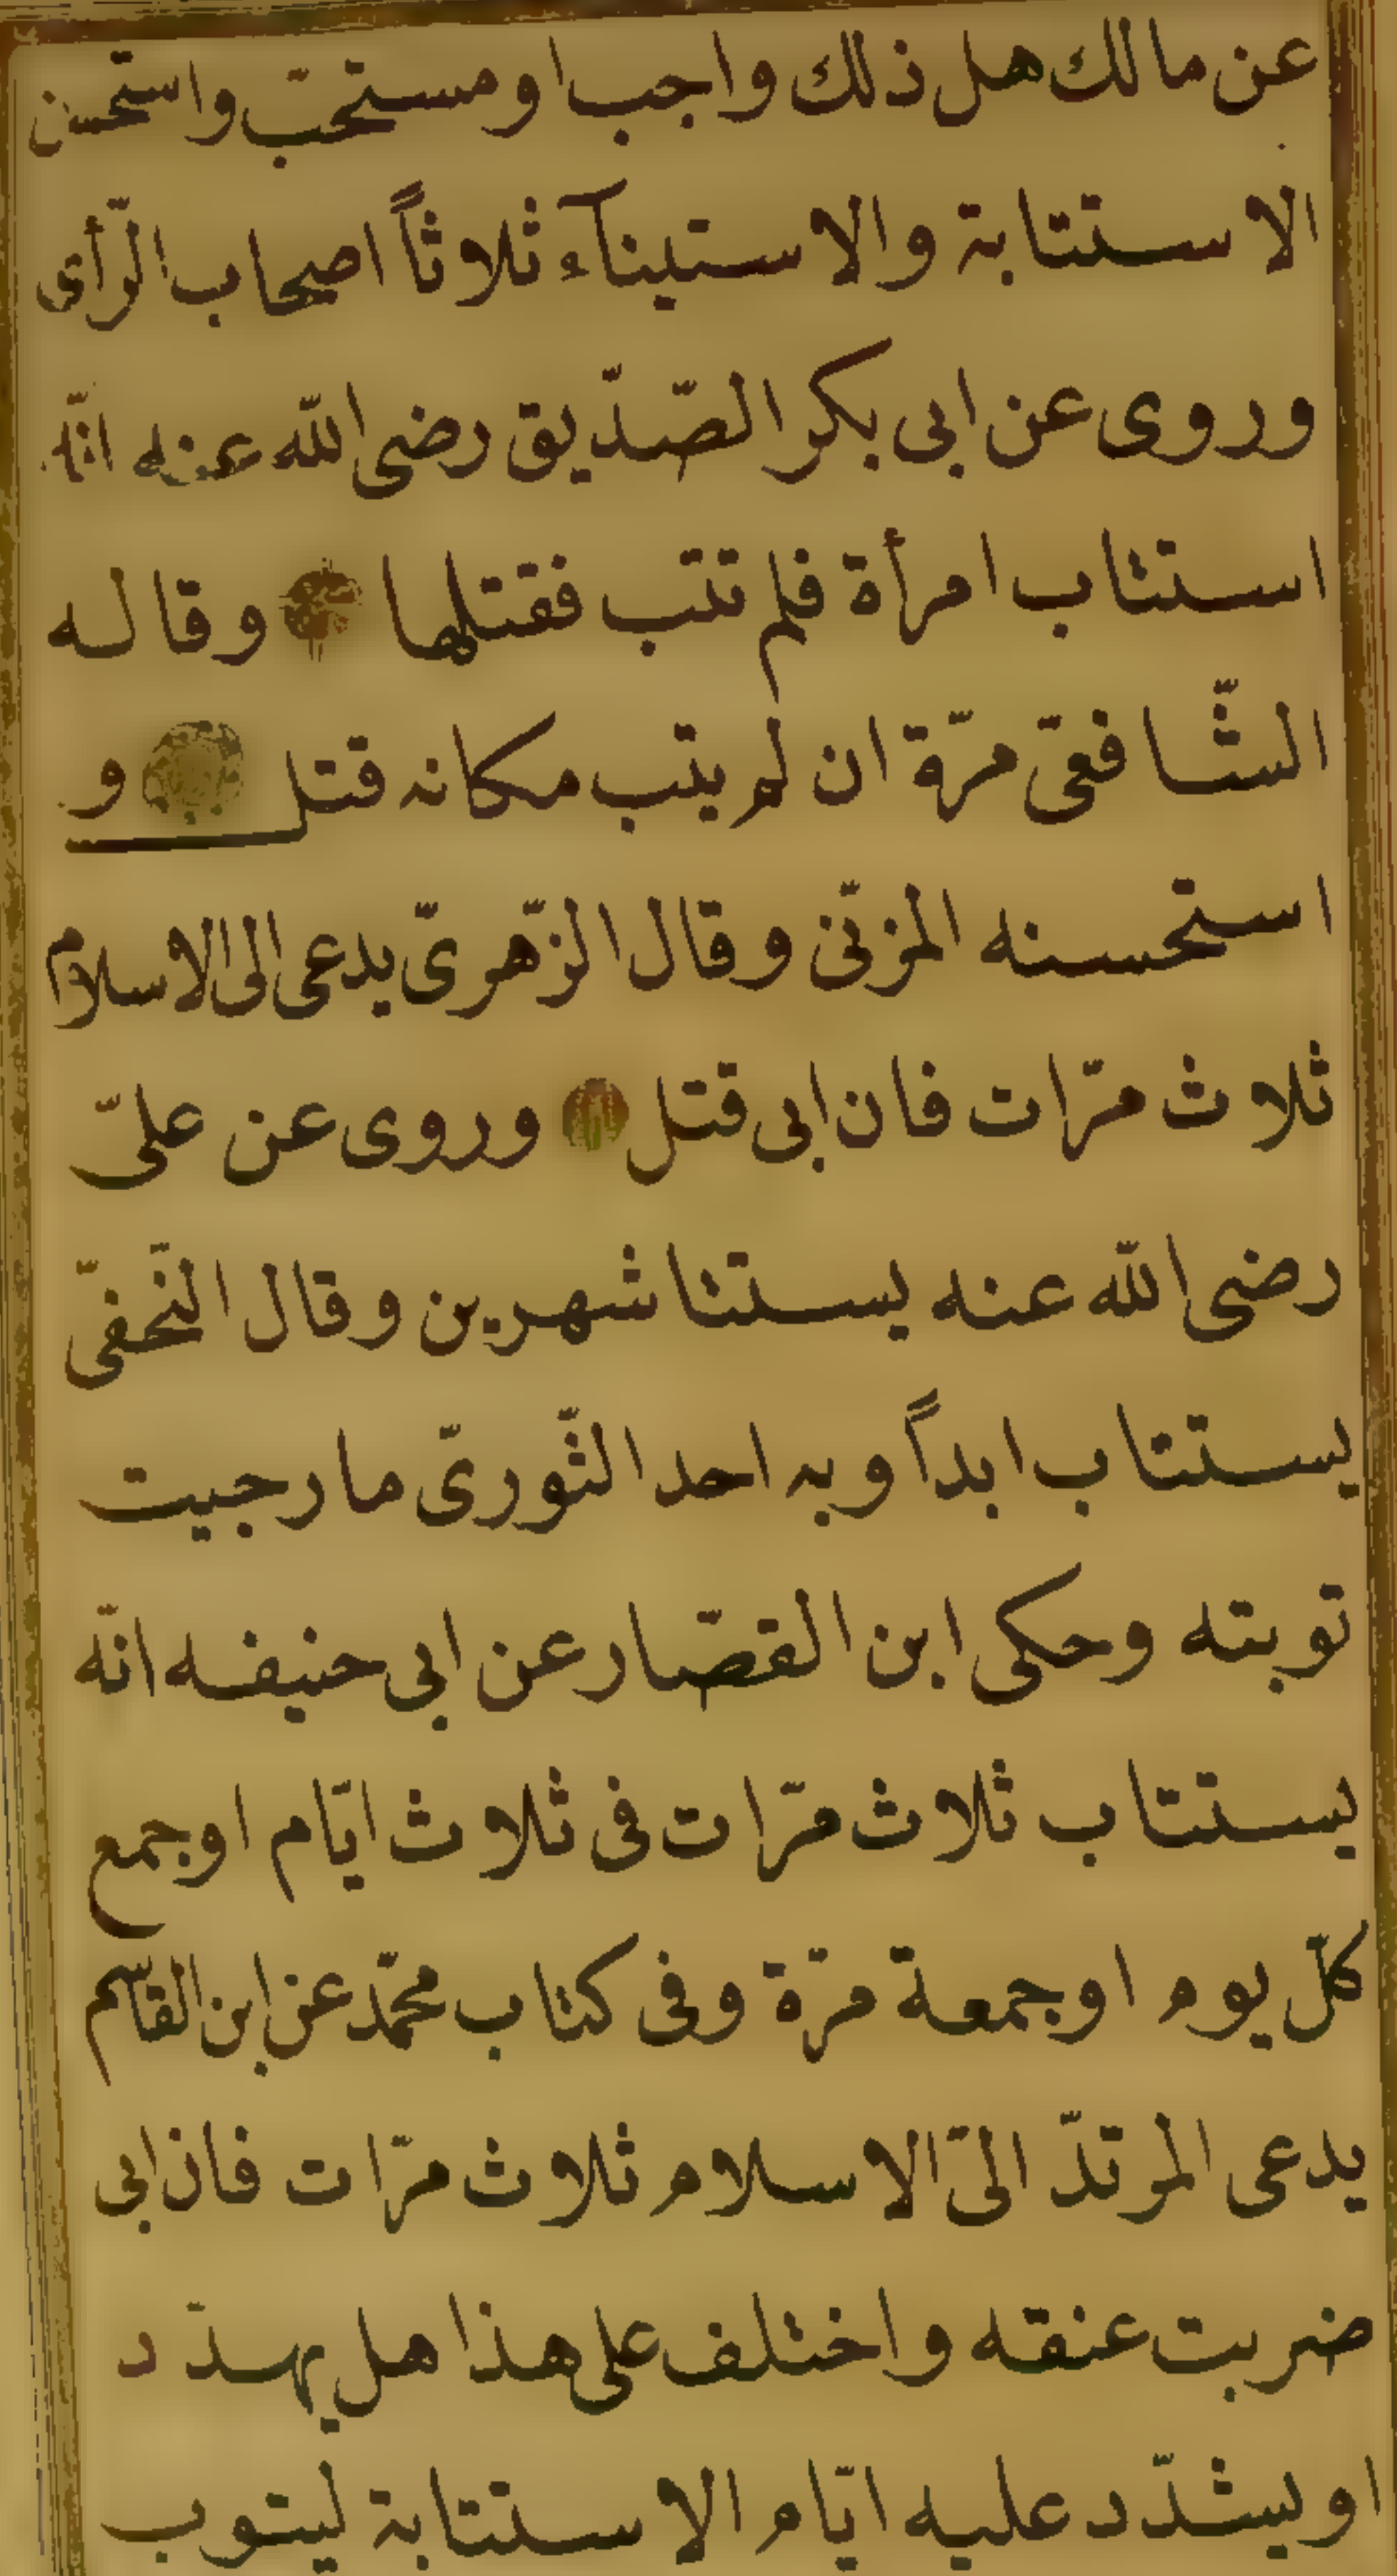 عن مالك هل ذلك واجب او مستحبّ واستحسن
الاستتابة والاستيناآء ثلاثاً اصحاب الرّأى
وروى عن ابى بكر الصّدّيق رضى الله عنه انّه
استتاب امرأة فلم تتب فقتلها وقاله
الشّافعىّ مرّة ان لم يتب مكانه قتل و
استحسنه المزنّى وقال الزّهرىّ يدعى الى الاسلام
ثلاث مرّات فان ابى قتل وروى عن علىّ
رضى الله عنه يستتا شهرين وقال النّخفىّ
يستتاب ابداً وبه احد الثّورىّ ما رجيت
توبته وحكى ابن القصّار عن ابى حنيفه انّه
يستتاب ثلاث مرّات فى ثلاث ايّام او جمع
كلّ يوم او جمعة مرّة وفى كتاب محمّد عن ابن القاسم
يدعى المرتدّ الىّ الاسلام ثلاث مرّات فان ابى
ضربت عنقه واختلف على هذا هل يهدّد
او يشدّد عليه ايّام الاستتابة ليتوب